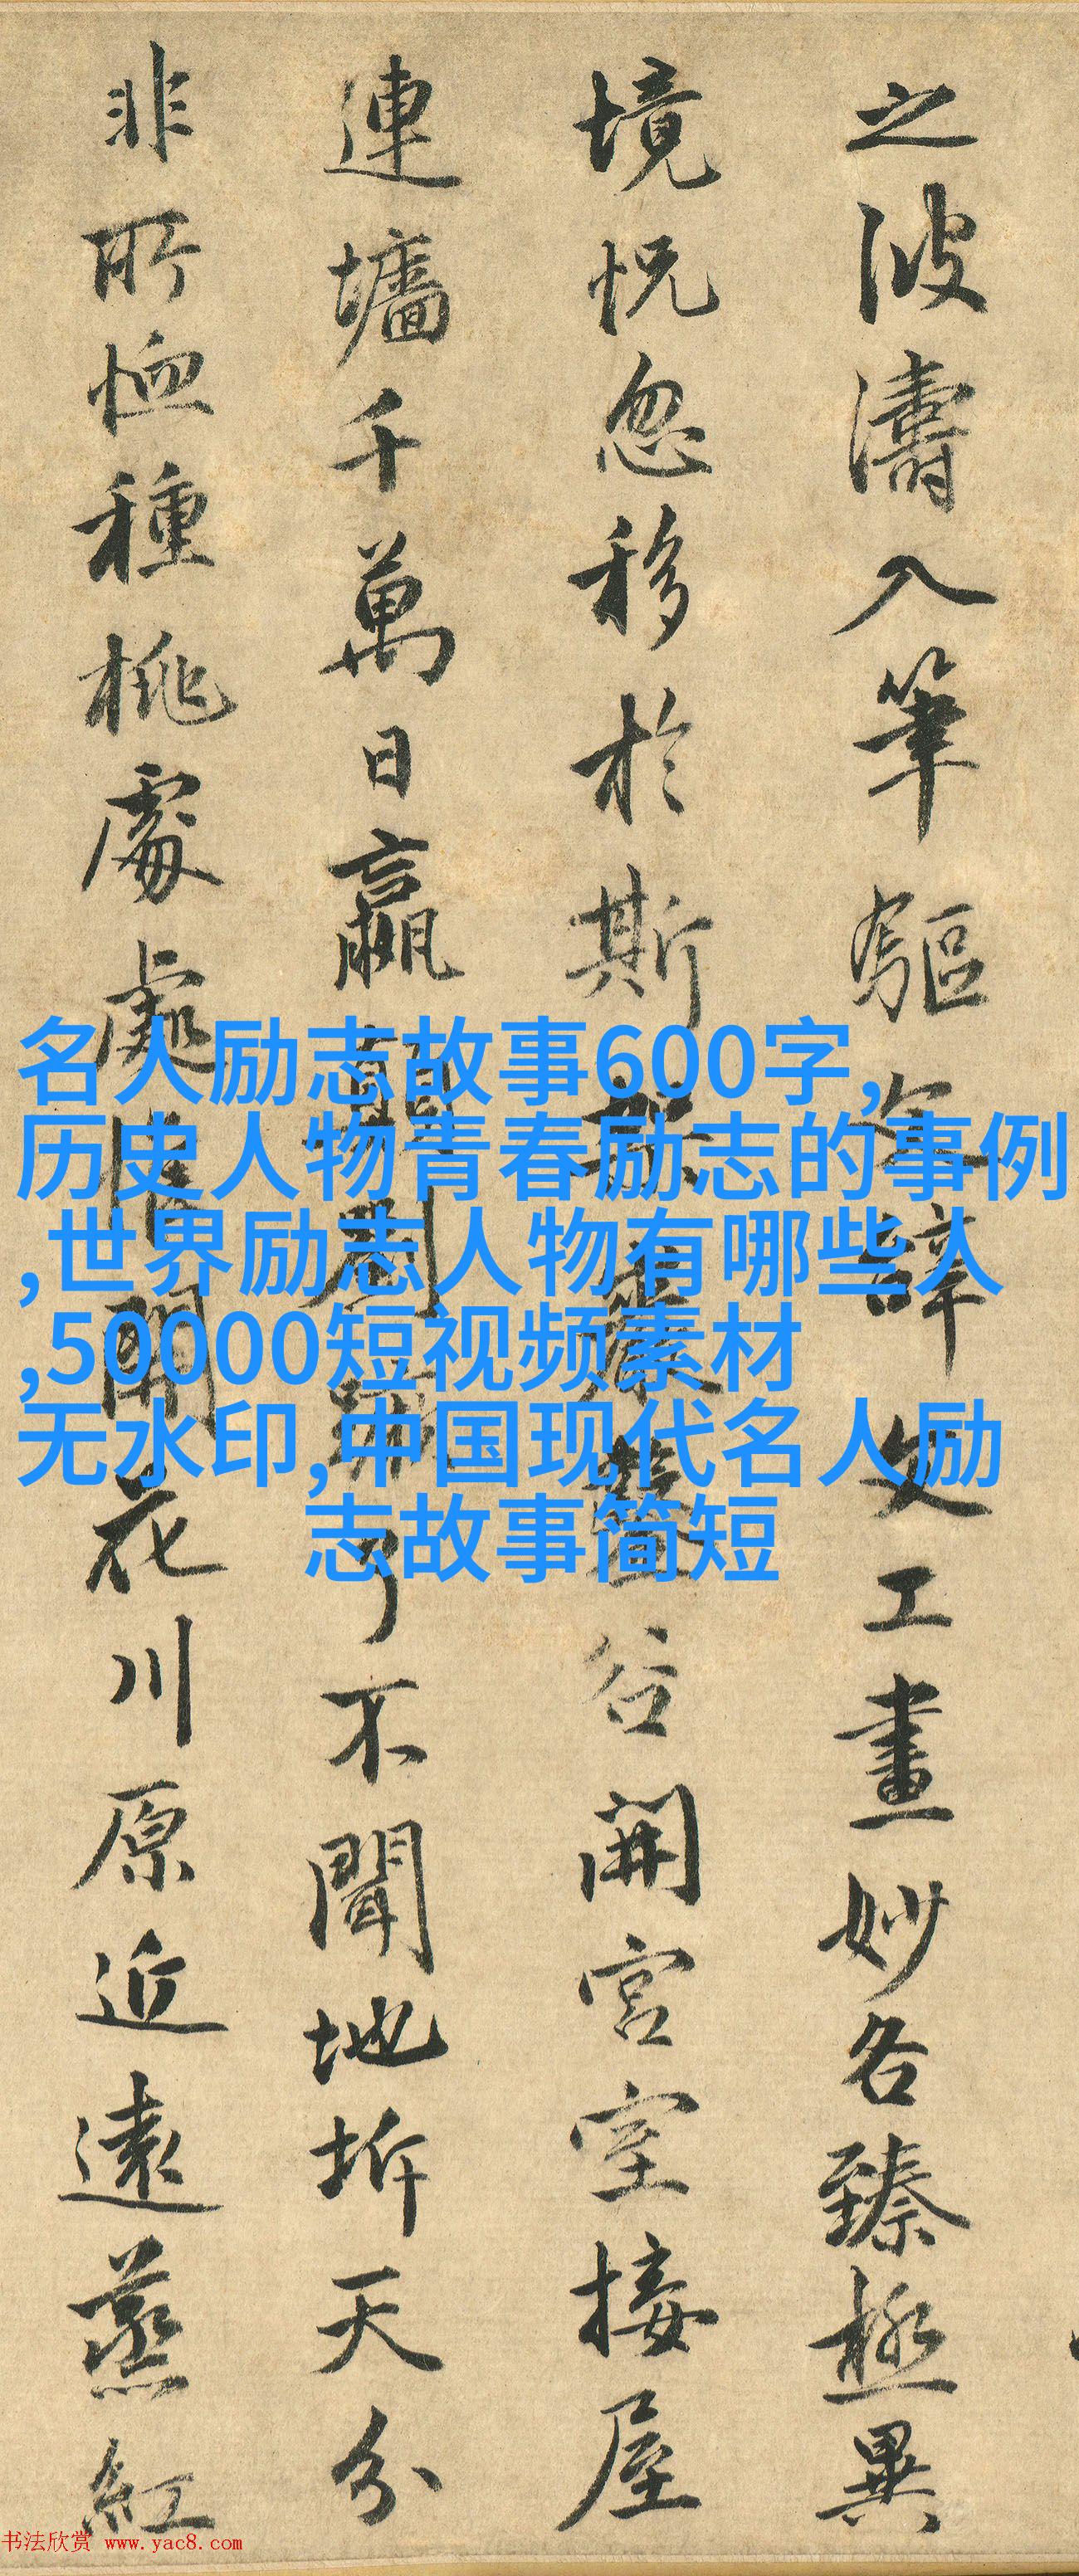 之波濤入筆驅文辭文工畫妙各臻極異
境怳忽移於斯架巖鑿谷開宮室接屋
連墻千萬日嬴顛劉蹶了不聞地坼天分
非所恤種桃處處惟開花川原近遠蒸紅
名人励志故事600字,
历史人物青春励志的事例
,世界励志人物有哪些人
,50000短视频素材
无水印,中国现代名人励
志故事简短
书法欣赏 www.yac8.com